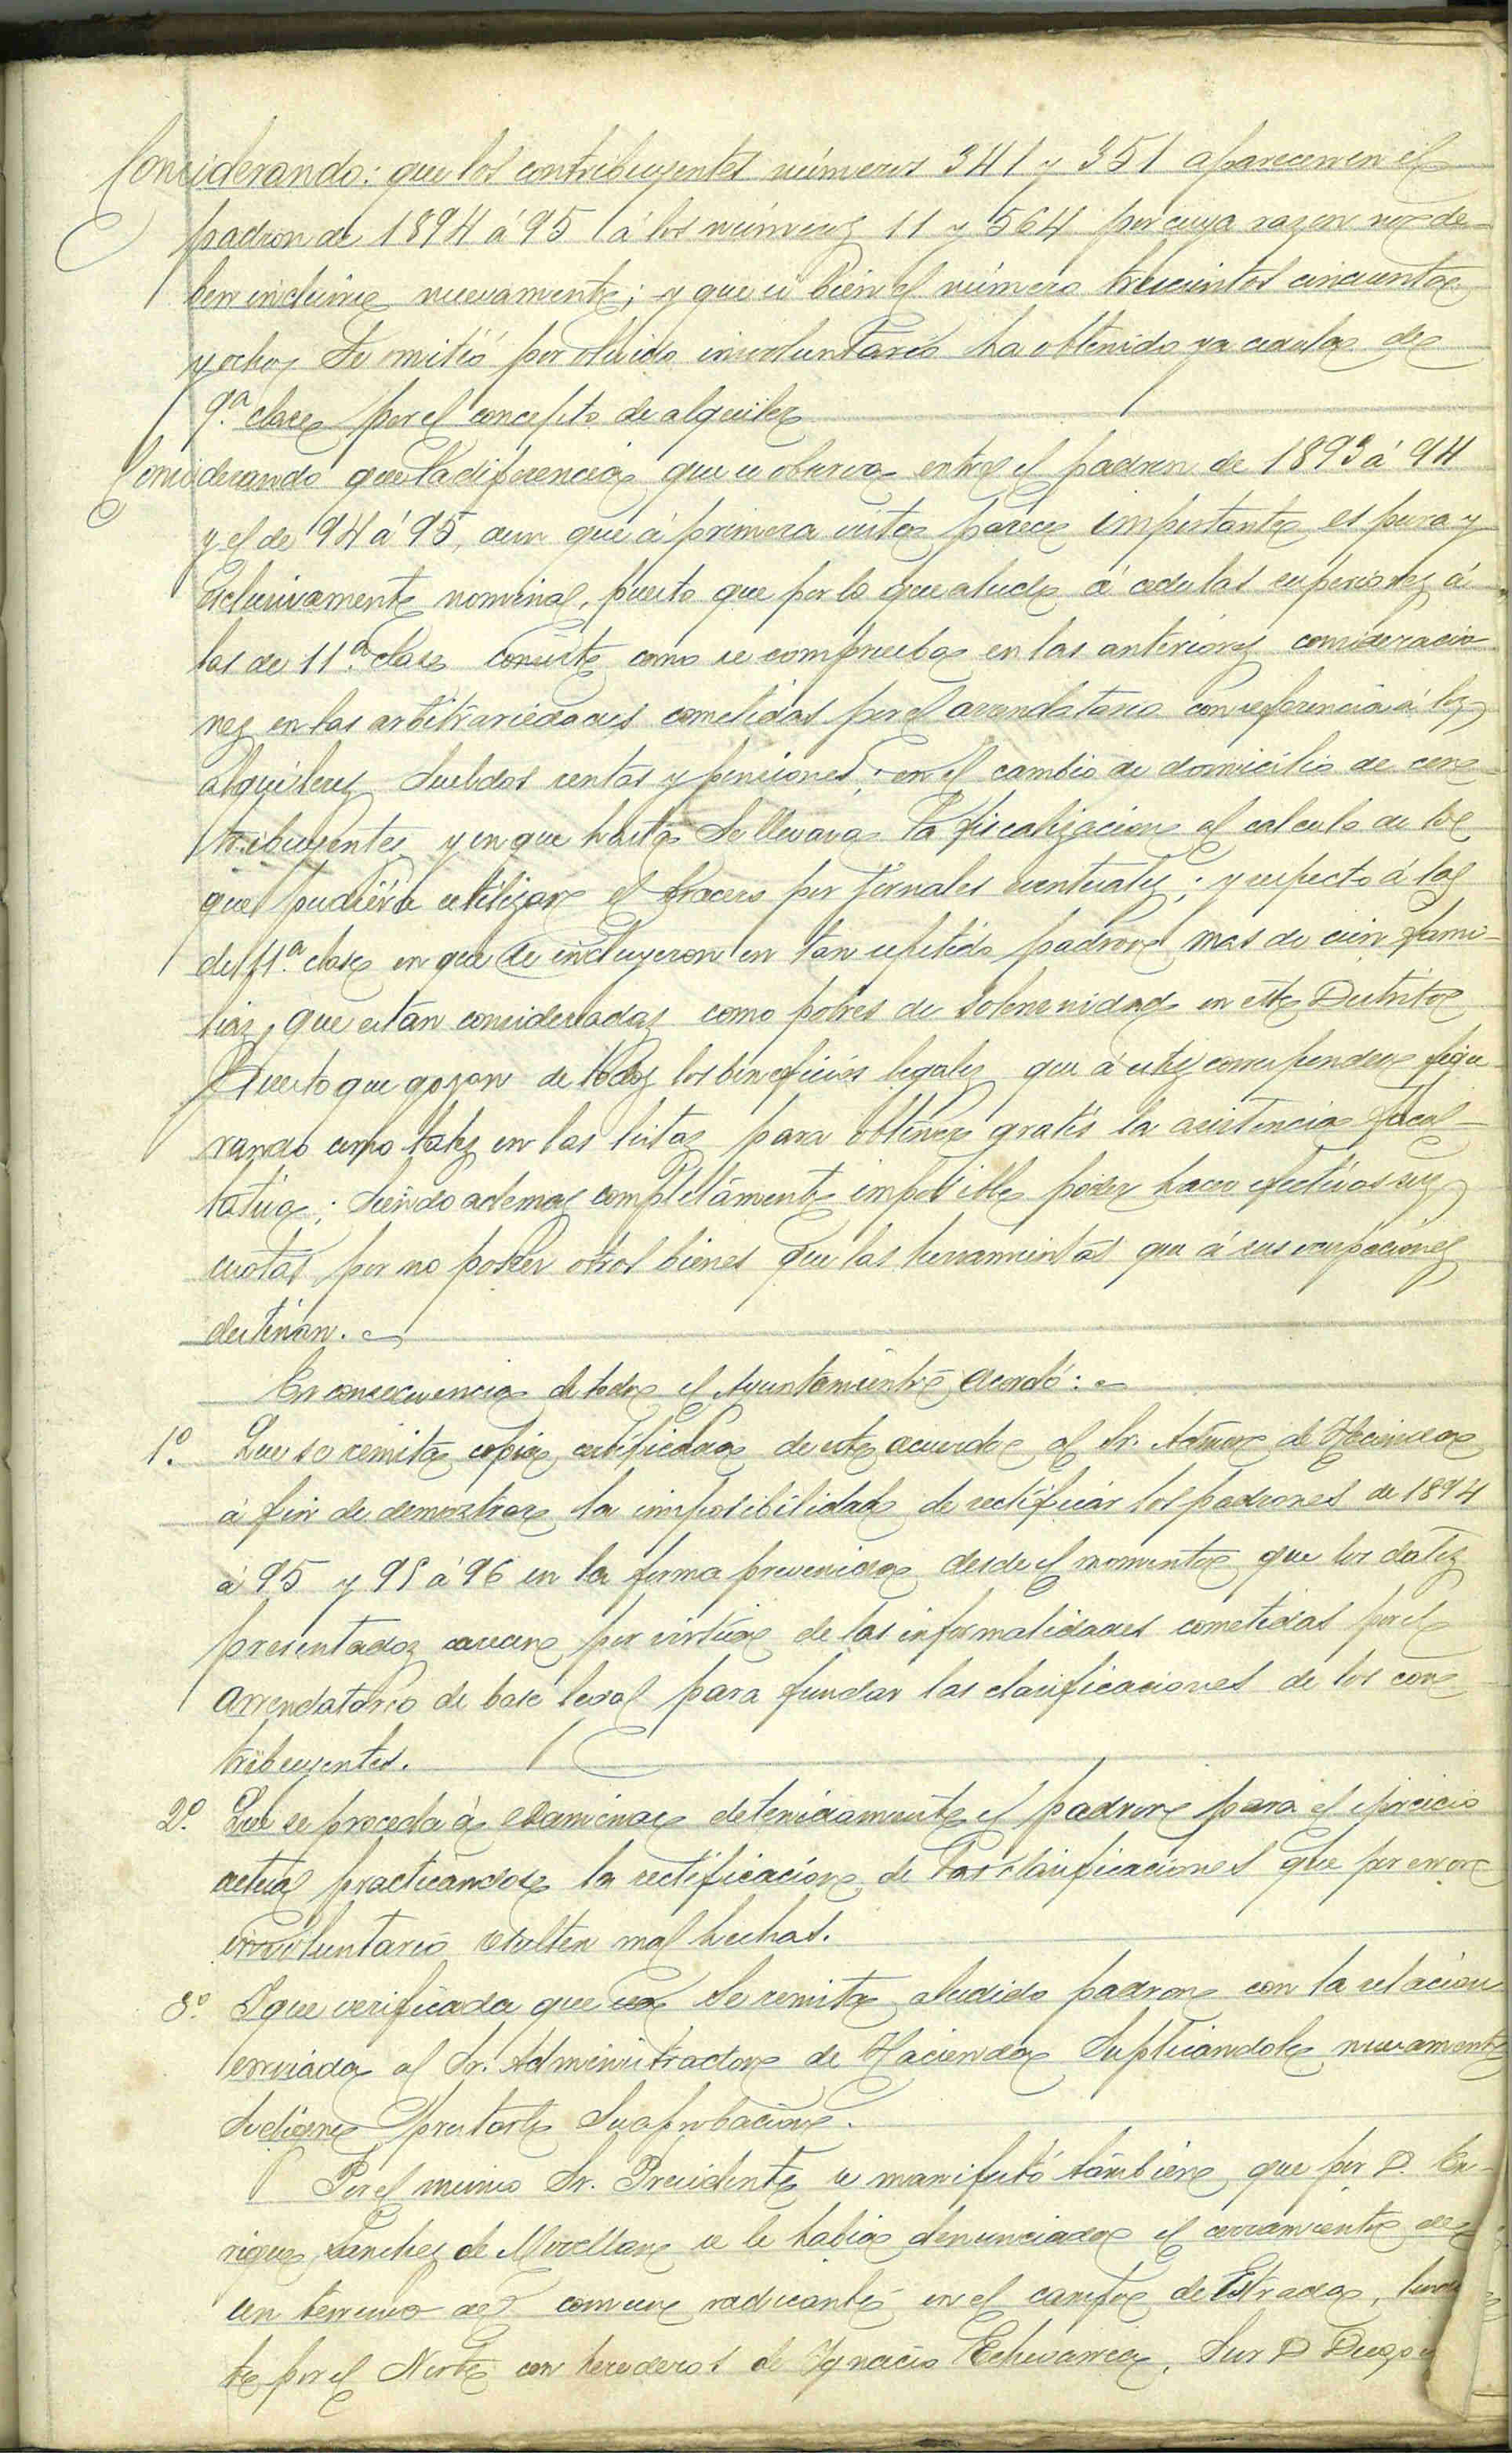 Considerando: que los contribuyentes números 341 y 351 aparecen en el
padron de 1894 á 95 á los números 11 y 564 por cuya razon no de-
ben incluirse nuevamente; y que si bien el número trescientos cincuenta
y ocho, se omitió por olvido involuntario ha obtenido ya cedula de
9.ª clase por el concepto de alquiler
Considerando que la diferencia que se observa entre el padron de 1893 á 94
y el de 94 á 95, aun que á primera vista parece importante es pura y
esclusivamente nominal, puesto que por lo que alude á cedulas superiores á
las de 11.ª clase consiste como se comprueba en las anteriores consideracio-
nes en las arbitrariedades cometidas por el arrendatario con referencia á los
alquileres sueldos rentas y pensiones; en el cambio de domicilio de con-
tribuyentes y en que hasta se llevara la fiscalizacion al calculo de lo
que pudiera utilizar el bracero por jornales eventuales; y respecto á las
de 11.ª clase en que se incluyeron en tan repetido padron mas de cien fami-
lias, que estan consideradas como pobres de solemnidad en este Distrito
Puesto que gozan de todos los beneficios legales que á estos corresponden figu-
rando como tales en las listas para obtener gratis la asistencia facul-
tativa; siendo ademas completamente imposible poder hacer efectivas sus
cuotas por no poseer otros bienes que las herramientas que á sus ocupaciones
destinan.
En consecuencia de todo el Ayuntamiento acordó:
1.º Que se remita copia certificada de este acuerdo al Sr. Admor de Hacienda
á fin de demostrar la imposibilidad de rectificar los padrones de 1894
á 95 y 95 á 96 en la forma prevenida desde el momento que los datos
presentados carecen por virtud de las informalidades cometidas por el
arrendatario de base legal para fundar las clasificaciones de los con
tribuyentes.
2.º Que se proceda á examinar detenidamente el padron para el ejercicio
actual practicandose la rectificacion de las clasificaciones que por error
involuntario resulten mal hechas.
3.º Y que verificada que sea se remita aludido padron con la relacion
enviada al Sr. Administrador de Hacienda suplicandole nuevamente
se digne prestarle su aprobacion.
Por el mismo Sr. Presidente se manifestó tambien que por D. En-
rique Sanchez de Movellan se le habia denunciado el cerramiento de
un terreno del comun radicante en el campo de Estrada,
te por el Norte con herederos de Ignacio Echevarria, Sur D Diego